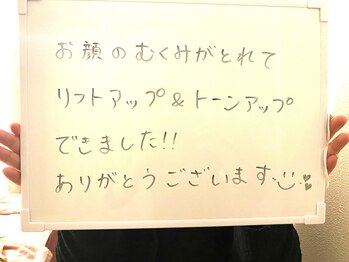 お顔のむくみがとれて
リフトアップ&トーンアップ
できました!!
ありがとうございます